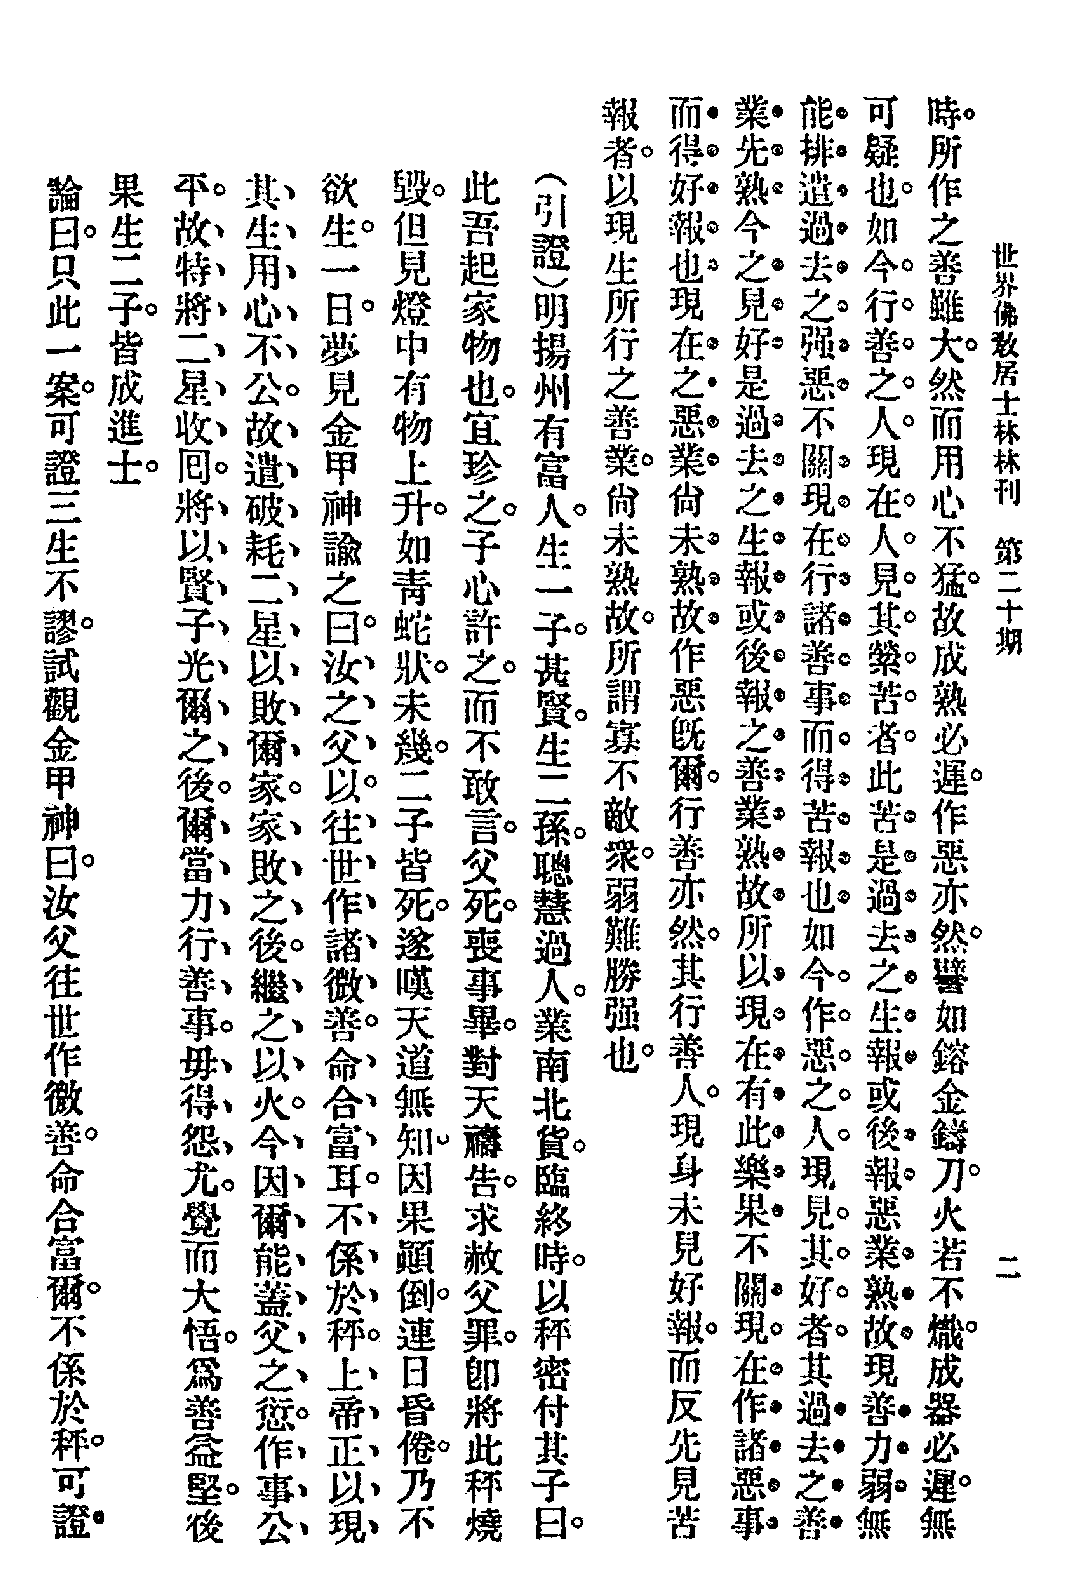 世界佛教居士林林刊　第二十期
二
時。所作之善雖大。然而用心不猛。故成熟必遲。作惡亦然。譬如鎔金鑄刀。火若不熾。成器必遲。無
可疑也。如今行善之人。現在人見其縈苦者。此苦是過去之生報或後報惡業熟。故現善力弱。無
能排遣過去之强惡。不關現在行諸善事而得苦報也。如今作惡之人。現見其好者。其過去之善
業先熟。今之見好。是過去之生報或後報之善業熟故。所以現在有此樂果。不關現在作諸惡事
而得好報也。現在之惡業尙未熟故。作惡既爾。行善亦然。其行善人。現身未見好報。而反先見苦
報者。以現生所行之善業。尙未熟故。所謂寡不敵衆。弱難勝强也。
（引證）明揚州有富人。生一子。甚賢。生二孫。聰慧過人。業南北貨。臨終時。以秤密付其子曰。
此吾起家物也。宜珍之。子心許之。而不敢言。父死。喪事畢。對天禱告。求赦父罪。卽將此秤燒
毀。但見燈中有物上升。如靑蛇狀。未幾。二子皆死。遂嘆天道無知。因果顚倒。連日昏倦。乃不
欲生。一日。夢見金甲神諭之曰。汝之父。以往世作諸微善。命合富耳。不係於秤。上帝正以現
其生用心不公。故遣破耗二星。以敗爾家。家敗之後。繼之以火。今因爾能蓋父之愆。作事公
平。故特將二星收囘。將以賢子光爾之後。爾當力行善事。毋得怨尤。覺而大悟。爲善益堅。後
果生二子。皆成進士。
論曰。只此一案。可證三生不謬。試觀金甲神曰。汝父往世作微善。命合富爾。不係於秤。可證